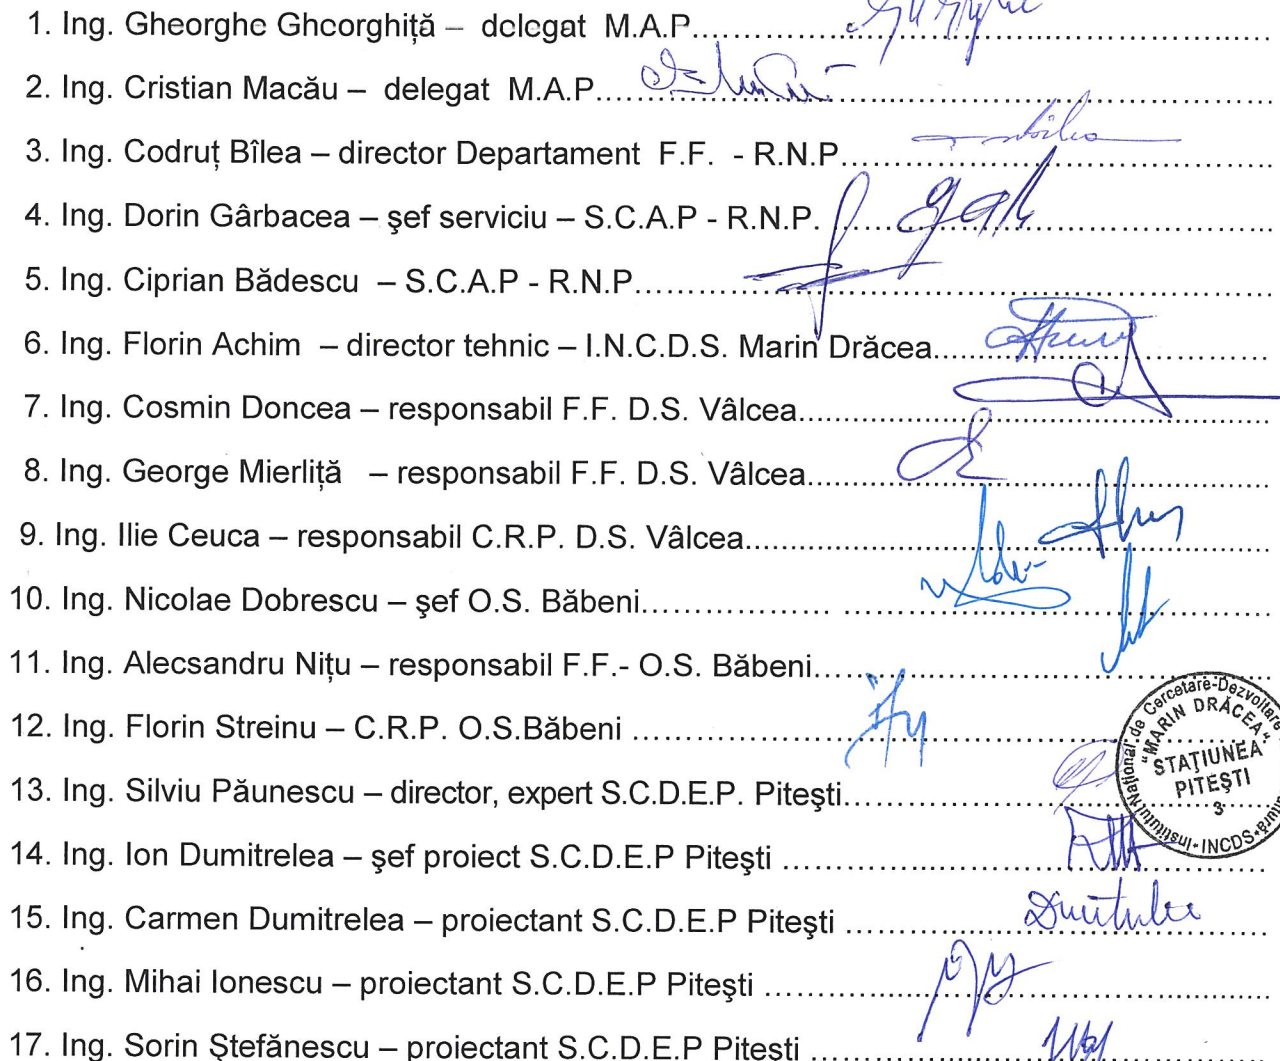 1. Ing. Gheorghe Gheorghiță – delegat M.A.P.......................................................
2. Ing. Cristian Macău – delegat M.A.P.......................................................
3. Ing. Codruț Bîlea – director Departament F.F. - R.N.P.......................................
4. Ing. Dorin Gârbacea – şef serviciu – S.C.A.P - R.N.P. .......................................
5. Ing. Ciprian Bădescu – S.C.A.P - R.N.P.......................................................
6. Ing. Florin Achim – director tehnic – I.N.C.D.S. Marin Drăcea..............................
7. Ing. Cosmin Doncea – responsabil F.F. D.S. Vâlcea..........................................
8. Ing. George Mierliță – responsabil F.F. D.S. Vâlcea..........................................
9. Ing. Ilie Ceuca – responsabil C.R.P. D.S. Vâlcea.............................................
10. Ing. Nicolae Dobrescu – şef O.S. Băbeni.................... .......................................
11. Ing. Alecsandru Nițu – responsabil F.F.- O.S. Băbeni.......................................
12. Ing. Florin Streinu – C.R.P. O.S.Băbeni .......................................................
13. Ing. Silviu Păunescu – director, expert S.C.D.E.P. Piteşti....................................
14. Ing. Ion Dumitrelea – şef proiect S.C.D.E.P Piteşti ..........................................
15. Ing. Carmen Dumitrelea – proiectant S.C.D.E.P Piteşti .......................................
16. Ing. Mihai Ionescu – proiectant S.C.D.E.P Piteşti ..........................................
17. Ing. Sorin Ştefănescu – proiectant S.C.D.E.P Pitesti .......................................
Institutul Național de Cercetare-Dezvoltare
INCDS
"MARIN DRĂCEA"
STAȚIUNEA
PITEŞTI
3